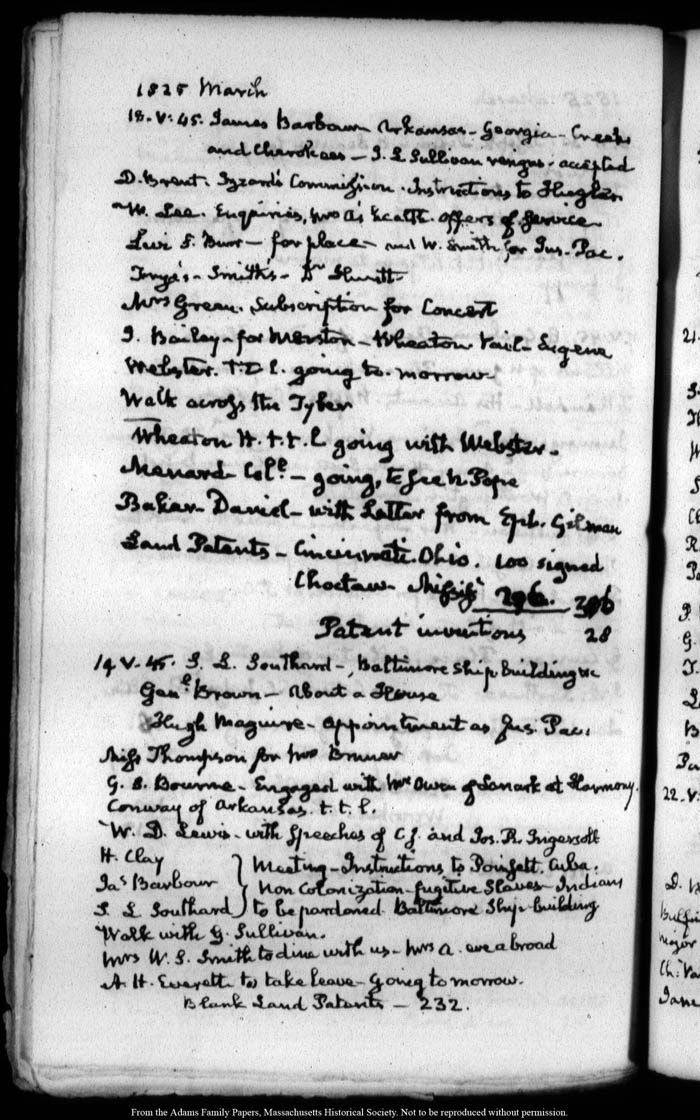 1825 March
18. V: 45. James Barbour Arkansas - Georgia - Creeks
and Cherokees - J. L Sullivan resigns - accepted
D. Brent. Izard's Commission. Instructions to Hughes
W. Lee. Enquiries, Mrs A's health offers of service
Levi S. Burr - for place - and W. Smith for Jus. Pac.
Smith's - Dr Huntt
Mrs Green. Subscription for Concert
J. Bailey - for Marston - Wheaton Vail - Eugene
Webster. T. T. L. going to-morrow
Walk across the Tyber
Wheaton H. t. t. l. going with Webster -
Menard Col.l - going, to see N Pope
Baker - David - with Letter from Eph. Gilman
Land Patents - Cincinnati. Ohio. 100 signed
Choctaw - Missisi 206. 306
Patent inventions 28
19. V. 45. S. L. Southard -, Baltimore Ship building &c
Genl. Brown - About a House
Hugh Maguire - appointment as Jus. Pac.
Miss Thompson for
G. B. Bourne - Engaged with Mr Owen of Lanark at Harmony.
Conway of Arkansas. t. t. l.
W. D. Lewis - with Speeches of C. J. and Jos. R. Ingersoll
H. Clay
Meeting - Instructions to Poinsett. Cuba.
Jas Barbour
Non Colonization - fugitive Slaves - Indians
S. L Southard
to be pardoned. Baltimore Ship-building
Walk with G. Sullivan.
Mrs W. S. Smith to dine with us - Mrs A. eve abroad
A. H. Everett to take leave - Going to morrow.
Blank Land Patents - 232.
21.
22. V:
From the Adams Family Papers, Massachusetts Historical Society. Not to be reproduced without permission.